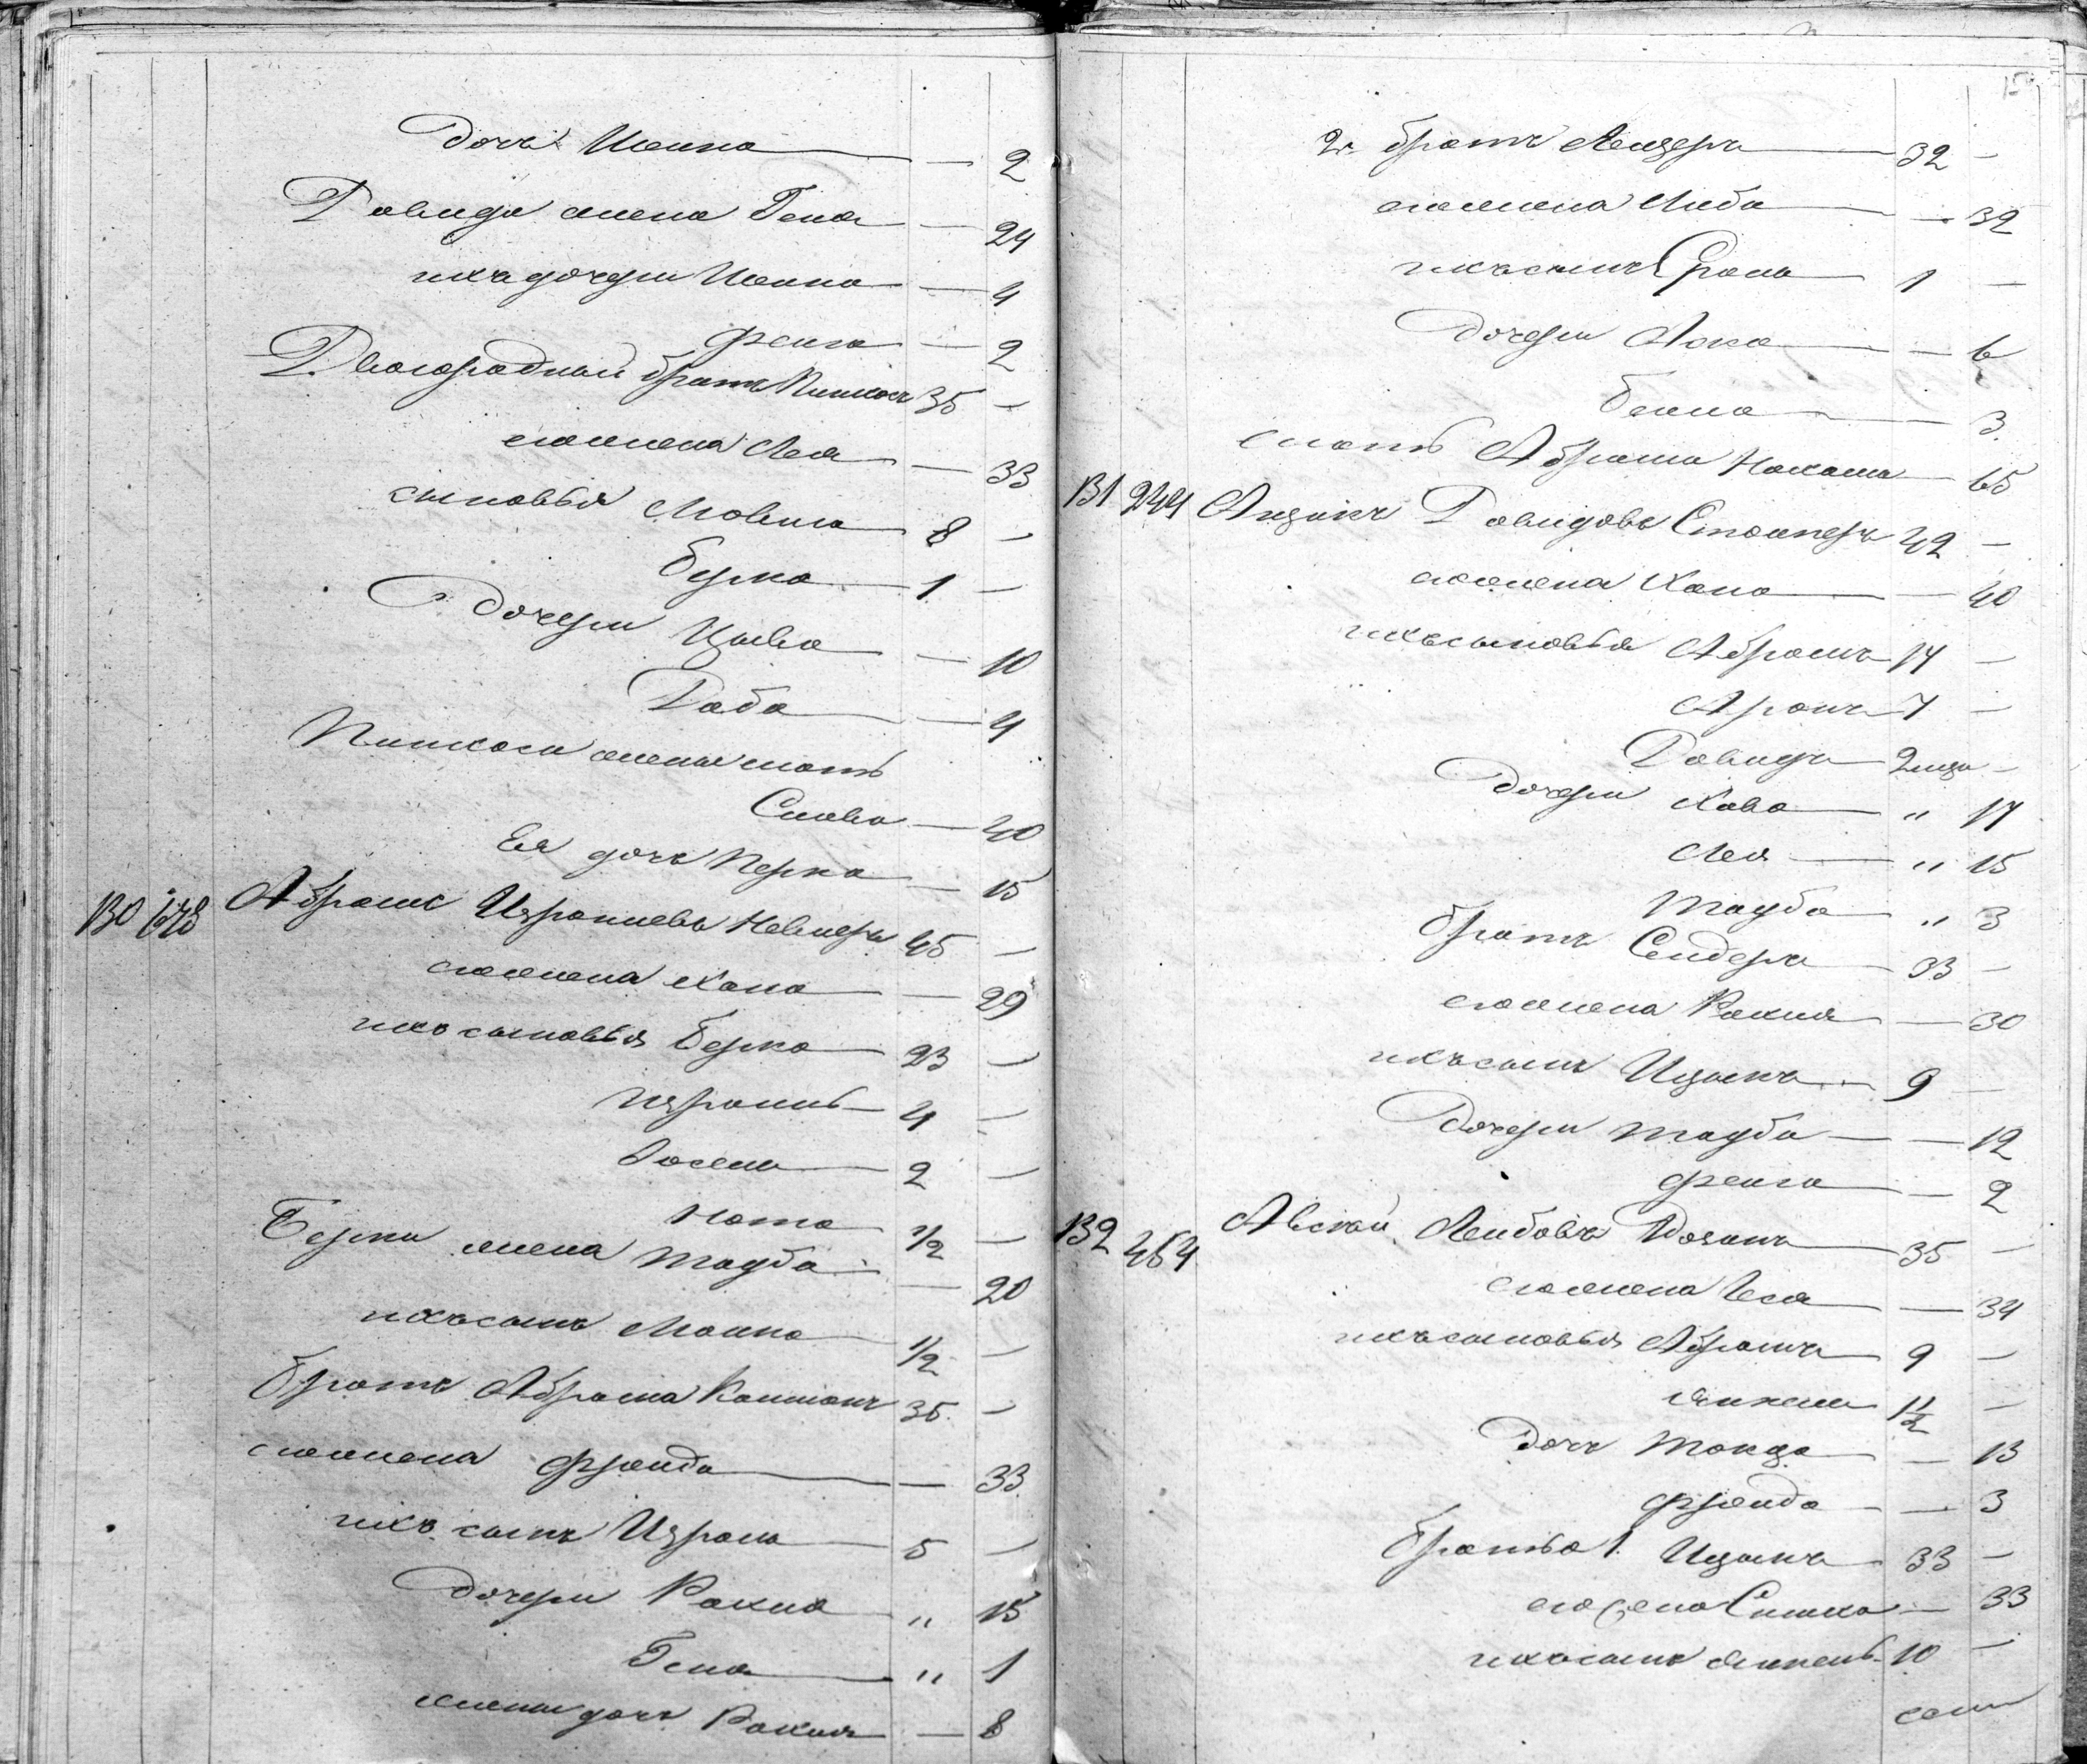 дочь Шейна — 2
Давида жена Геня — 24
ихъ дочери Шейна — 4
Фейга — 2
Двоюродный братъ Пинхосъ 35 —
его жена Лея — 33
сыновья Мовша 8 —
Берко 1 —
дочери Цывя — 10
Таба — 4
Пинхоса жены мать
Слава — 40
Ея дочь Перка — 15
130 678 Абрамъ Израилевъ Невлеръ 45 —
его жена Хана — 29
ихъ сыновья Берко 23 —
Израиль 4 —
Іосель 2 —
Нота 1/2 —
Берки жена Тауба — 20
ихъ сынъ Монна 1/2 —
братъ Абрама Калманъ 35 —
его жена Фрейда — 33
ихъ сынъ Израиль 5 —
дочери Рахиа " 15
Геня " 1
жены дочь Рахиля — 8
15
2й братъ Лейзеръ 32 —
его жена Либа — 32
ихъ сынъ Сроль 1 —
дочери Хока — 6
Бейла — 3
мать Абрама Нахама — 65
131 244 Айзикъ Давидовъ Столперъ 42 —
его жена Хана — 40
ихъ сыновья Абрамъ 14 —
Аронъ 7 —
Давидъ 2 мца —
дочери Хава " 17
Лея " 15
Тауба " 3
братъ Сендеръ 33 —
его жена Рахиля — 30
ихъ сынъ Ицыкъ 9 —
дочери Тауба — 12
Фейга — 2
132 454 Лейбовъ 35 —
его жена Геся — 34
ихъ сыновья Абрамъ 9 —
Янкель 1 1/2 —
дочь — 13
Фрейда — 3
братья 1. Ицыкъ 33 —
его жена Симха — 33
ихъ сынъ Янкель 10 —